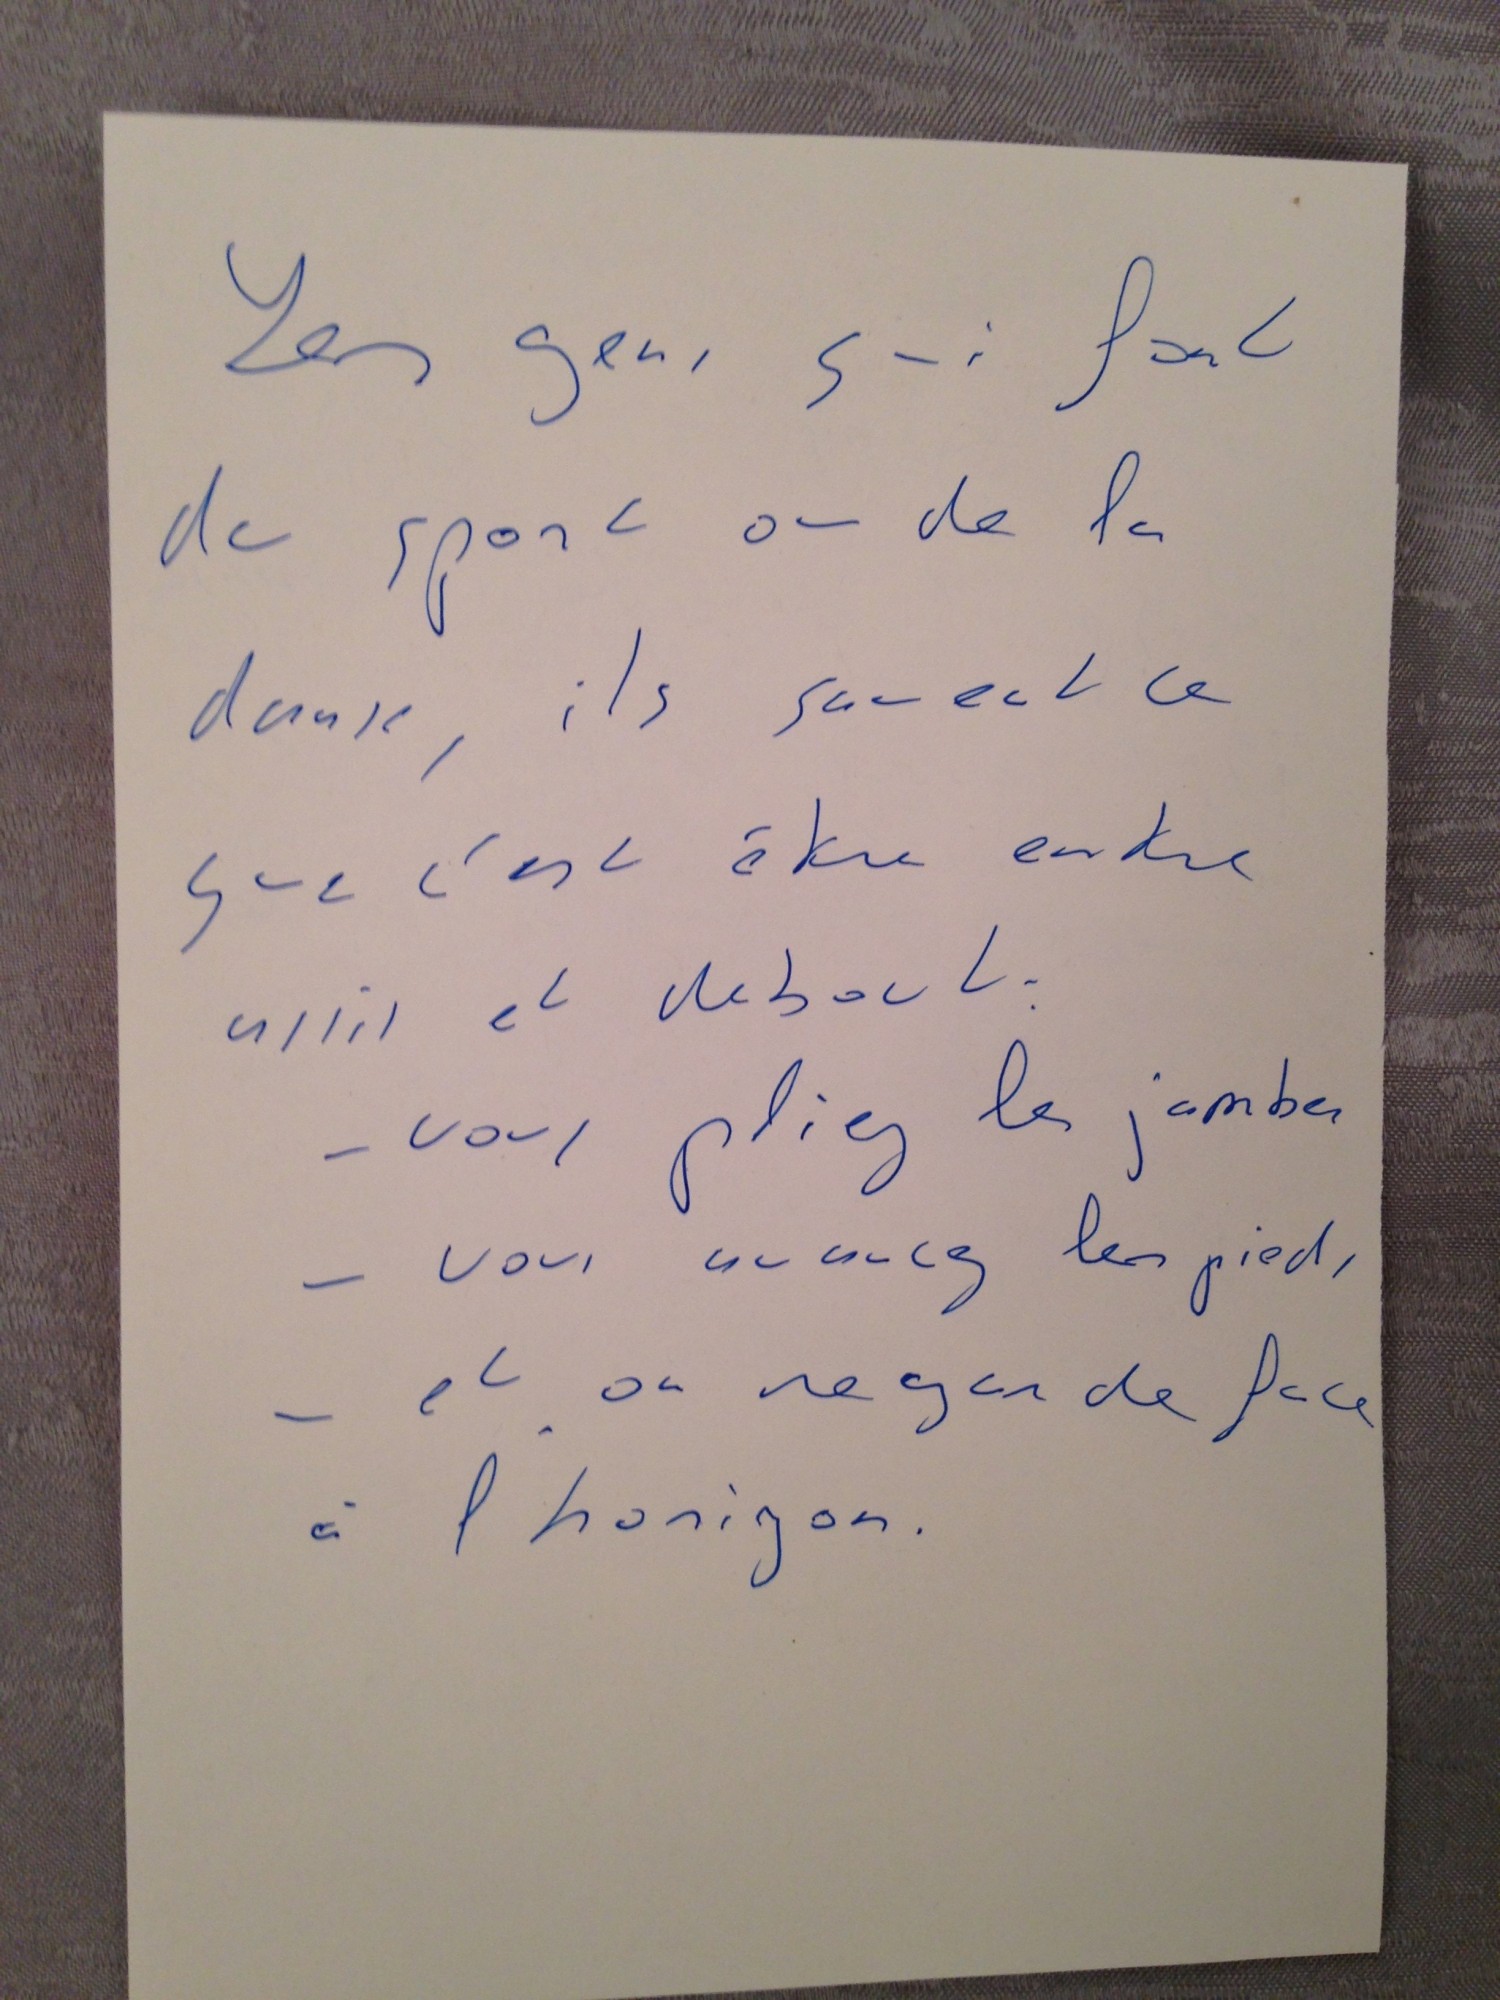 Les gens qui font
du sport ou de la
danse, ils savent ce
que c'est être entre
assis et debout :
- vous pliez les jambes
- vous avancez les pieds
- et on regarde face
à l'horizon.